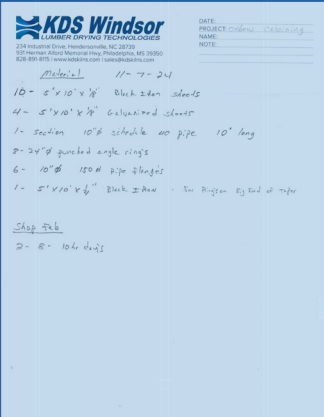 KDS Windsor
LUMBER DRYING TECHNOLOGIES
234 Industrial Drive, Hendersonville, NC 28739
931 Herman Alford Memorial Hwy, Philadelphia, MS 39350
828-891-8115 | www.kdskilns.com | sales@kdskilns.com
DATE:
PROJECT:
NAME:
NOTE:
Material 11-7-24
10- 5'x10' x 1/8" Black Iron sheets
4- 5'x10' x 1/8" Galvanized sheets
1- section 10"Ø schedule 40 pipe 10' long
8- 24"Ø punched angle rings
6- 10"Ø 150# pipe flanges
1- 5'x10' x 1/4" Black Iron - for big end of taper
Shop Fab
2- 8- 10hr days